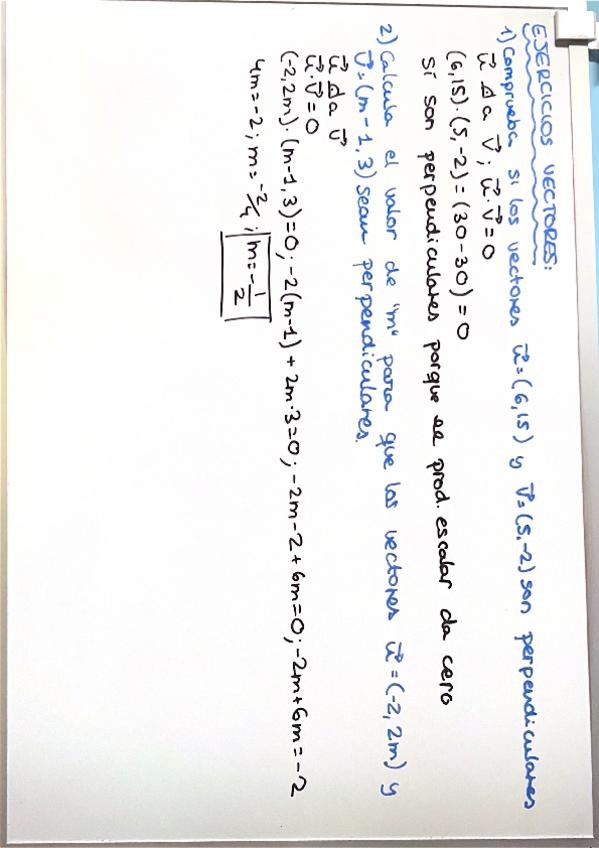 EJERCICIOS VECTORES:
1) Comprueba si los vectores u⃗=(6,15) y v⃗=(5,-2) son perpendiculares
u⃗ ⊥ a v⃗ ; u⃗·v⃗=0
(6,15)·(5,-2)=(30-30)=0
sí son perpendiculares porque se prod. escalar da cero
2) Calcula el valor de "m" para que los vectores u⃗=(-2,2m) y
v⃗=(m-1,3) sean perpendiculares.
u⃗ ⊥ a v⃗
u⃗·v⃗=0
(-2,2m)·(m-1,3)=0; -2(m-1)+2m·3=0; -2m-2+6m=0; -2m+6m=-2
4m=-2; m=-2/4; m=-1/2